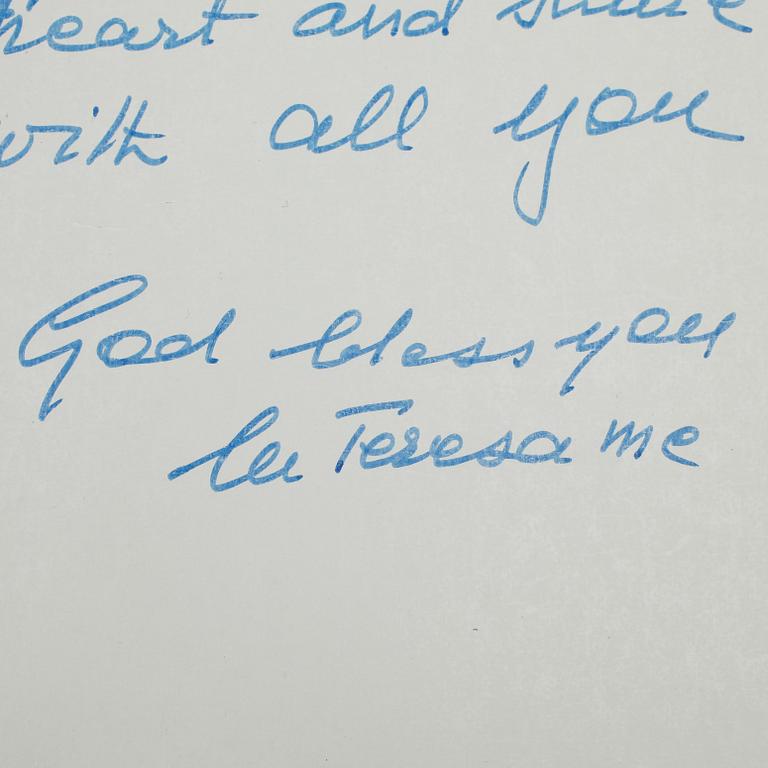 heart and share
with all you
God bless you
lee Teresa mc